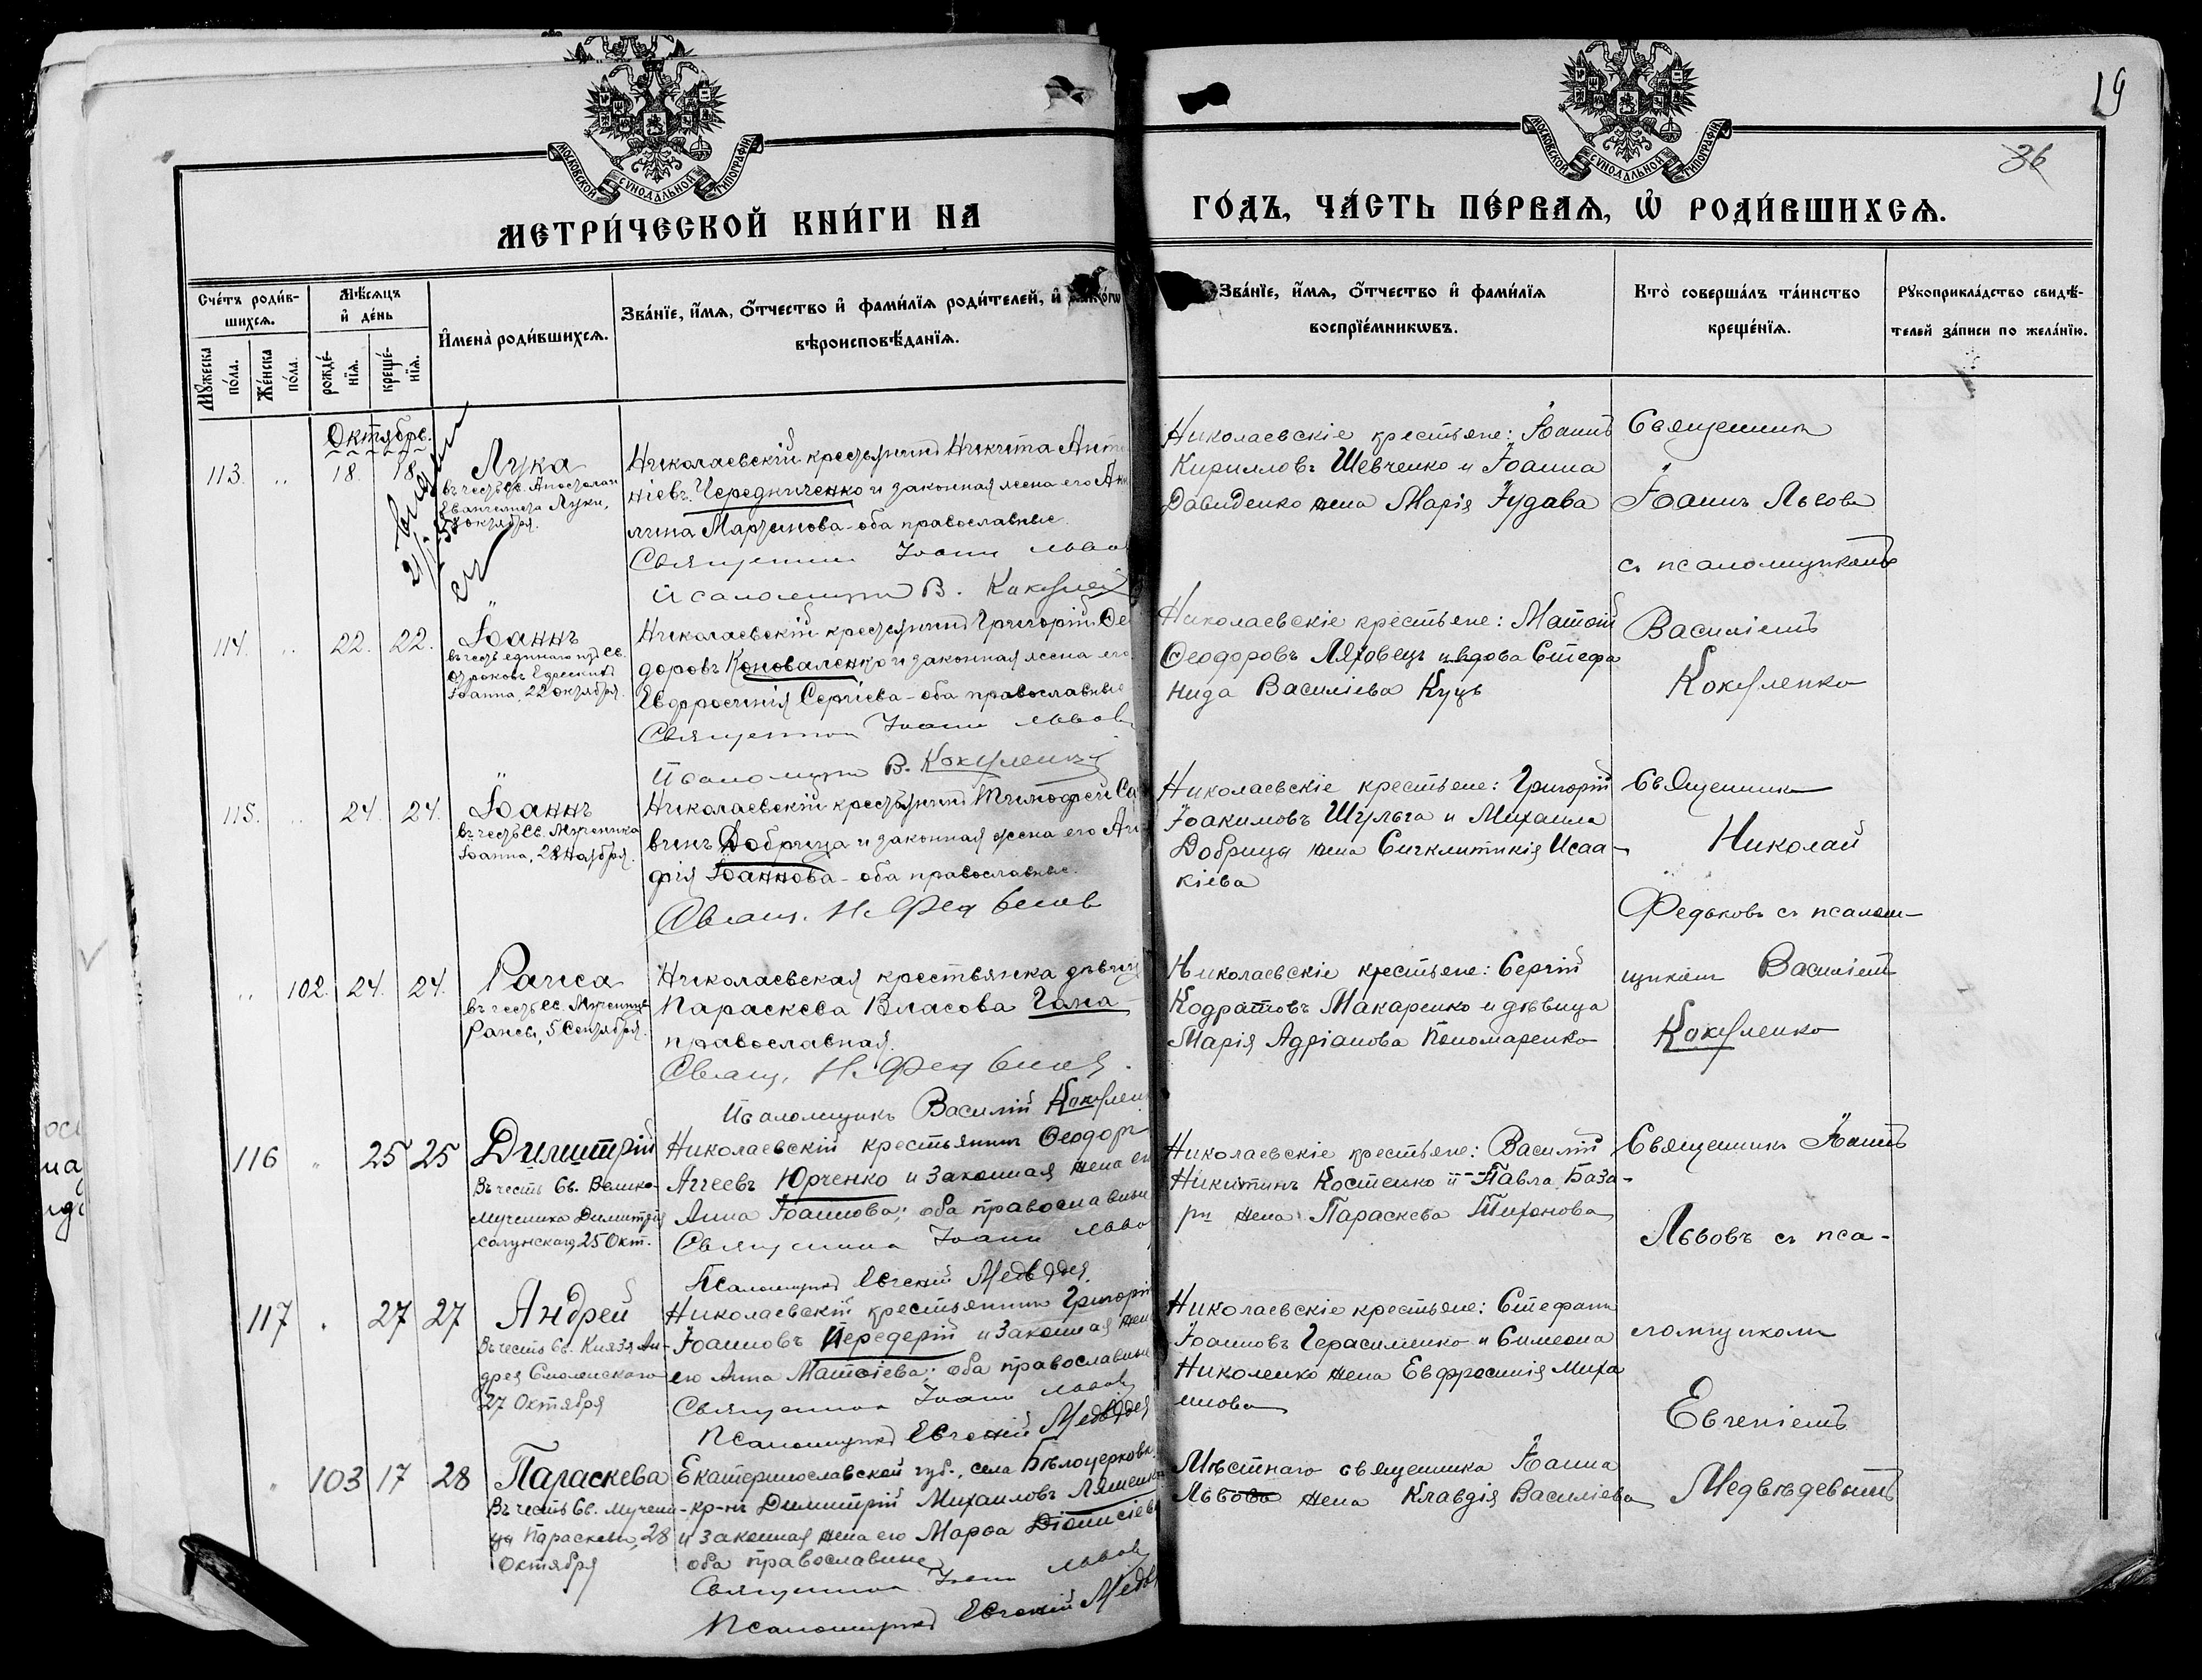 19
36
МОСКОВСКОЙ СѴНОДАЛЬНОЙ ТИПОГРАФІИ
МОСКОВСКОЙ СѴНОДАЛЬНОЙ ТИПОГРАФІИ
МЕТРИ́ЧЕСКОЙ КНИ́ГИ НА
ГО́ДЪ, ЧА́СТЬ ПЕ́РВАѦ, Ѡ҆ РОДИ́ВШИХСѦ.
Сче́тъ роди́в-
шихсѧ.
Мѣ́сѧцъ
и҆ де́нь
Мꙋ́жеска по́ла.
Же́нска по́ла.
рожде́-
нїѧ.
креще́-
нїѧ.
И҆мена̀ роди́вшихсѧ.
Зва́нїе, и҆́мѧ, ѻ҆́тчество и҆ фами́лїѧ роди́телей, и҆
вѣроисповѣ́данїѧ.
Зва́нїе, и҆́мѧ, ѻ҆́тчество и҆ фами́лїѧ
воспрїе́мникѡвъ.
Кто̀ соверша́лъ та́инство
креще́нїѧ.
Рꙋкоприкла́дство свидѣ́-
телей за́писи по жела́нїю.
Октябрь.
113. 18. 18.
Лука
въ честь Св. Апостола и
Евангелиста Луки,
18 октября.
Николаевскій крестьянинъ Никита Анто
ніевъ Чередниченко и законная жена его
Мартинова - оба православные.
Священник Іоанн Львов
Псаломщик В.
Николаевскіе крестьяне: Іоаннъ
Кирилловъ Шевченко и Іоанна
Давиденко жена Марія Іудава
Священник
Іоаннъ Львовъ
съ псаломщикомъ
114. 22. 22.
Іоаннъ
въ честь единаго изъ Св.
отроковъ Ефесскихъ
Іоанна, 22 октября.
Николаевскій крестьянинъ Григорій Ѳео
доровъ Коноваленко и законная жена его
Евфросинія Сергіева - оба православные
Священник Іоанн Львов
Псаломщик В.
Николаевскіе крестьяне: Матѳій
Ѳеодоровъ Ляховецъ и вдова Стефа
нида Василіева Куцъ
Василіемъ
115. 24. 24.
Іоаннъ
въ честь Св. Мученика
Іоанна, 28 Ноября.
Николаевскій крестьянинъ Тимоѳей Са
винъ Добрица и законная жена его
фія Іоаннова - оба православные.
Свящ. Н. Федьков
Николаевскіе крестьяне: Григорій
Іоакимовъ Шульга и Михаила
Добрицы жена Синклитикія Исаа-
кіева
Священник
Николай
Федьковъ съ псалом-
102. 24. 24.
Раиса
въ честь Св. Мученицы
Раисы, 5 Сентября.
Николаевская крестьянка дѣвица
Параскева Власова Гала
православная.
Свящ. Н. Федьков.
Псаломщикъ Василій
Николаевскіе крестьяне: Сергій
Кодратовъ Макаренко и дѣвица
Марія Адріанова Пономаренко
щикомъ Василіемъ
116 25 25
Димитрій
Въ честь Св. Велико-
мученика Димитрія
Солунскаго, 25 Окт.
Николаевскій крестьянинъ Ѳеодоръ
Аггеевъ Юрченко и законная жена ег
Анна Іоаннова; оба православные
Священник Іоанн Львов
Псаломщикъ Евгеній Медвѣдев
Николаевскіе крестьяне: Василій
Никитинъ Костенко и Павла База-
ръ жена Параскева Тихонова
Священникъ Іоаннъ
Львовъ съ пса-
117 27 27
Андрей
Въ честь Св. Князя Ан-
дрея Смоленскаго
27 Октября
Николаевскій крестьянинъ Григорій
Іоанновъ Передерій и законная жен
его Анна Матѳіева; оба православные
Священник Іоанн Львов
Псаломщикъ Евгеній Медвѣдев
Николаевскіе крестьяне: Стефанъ
Іоанновъ Герасименко и Симеона
Николенко жена Евфросинія Миха
илова
ломщикомъ
Евгеніемъ
103 17 28
Параскева
Въ честь Св. Мучени-
цы Параскевы, 28
Октября
Екатеринославской губ., села Бѣлоцерковки
кр-нъ Димитрій Михаиловъ Ляшенко
и законная жена его Марѳа Діонисіева
оба православные
Священник Іоанн Львов
Псаломщикъ Евгеній Медв
Мѣстнаго священника Іоанна
Львова жена Клавдія Василіева
Медвѣдевымъ